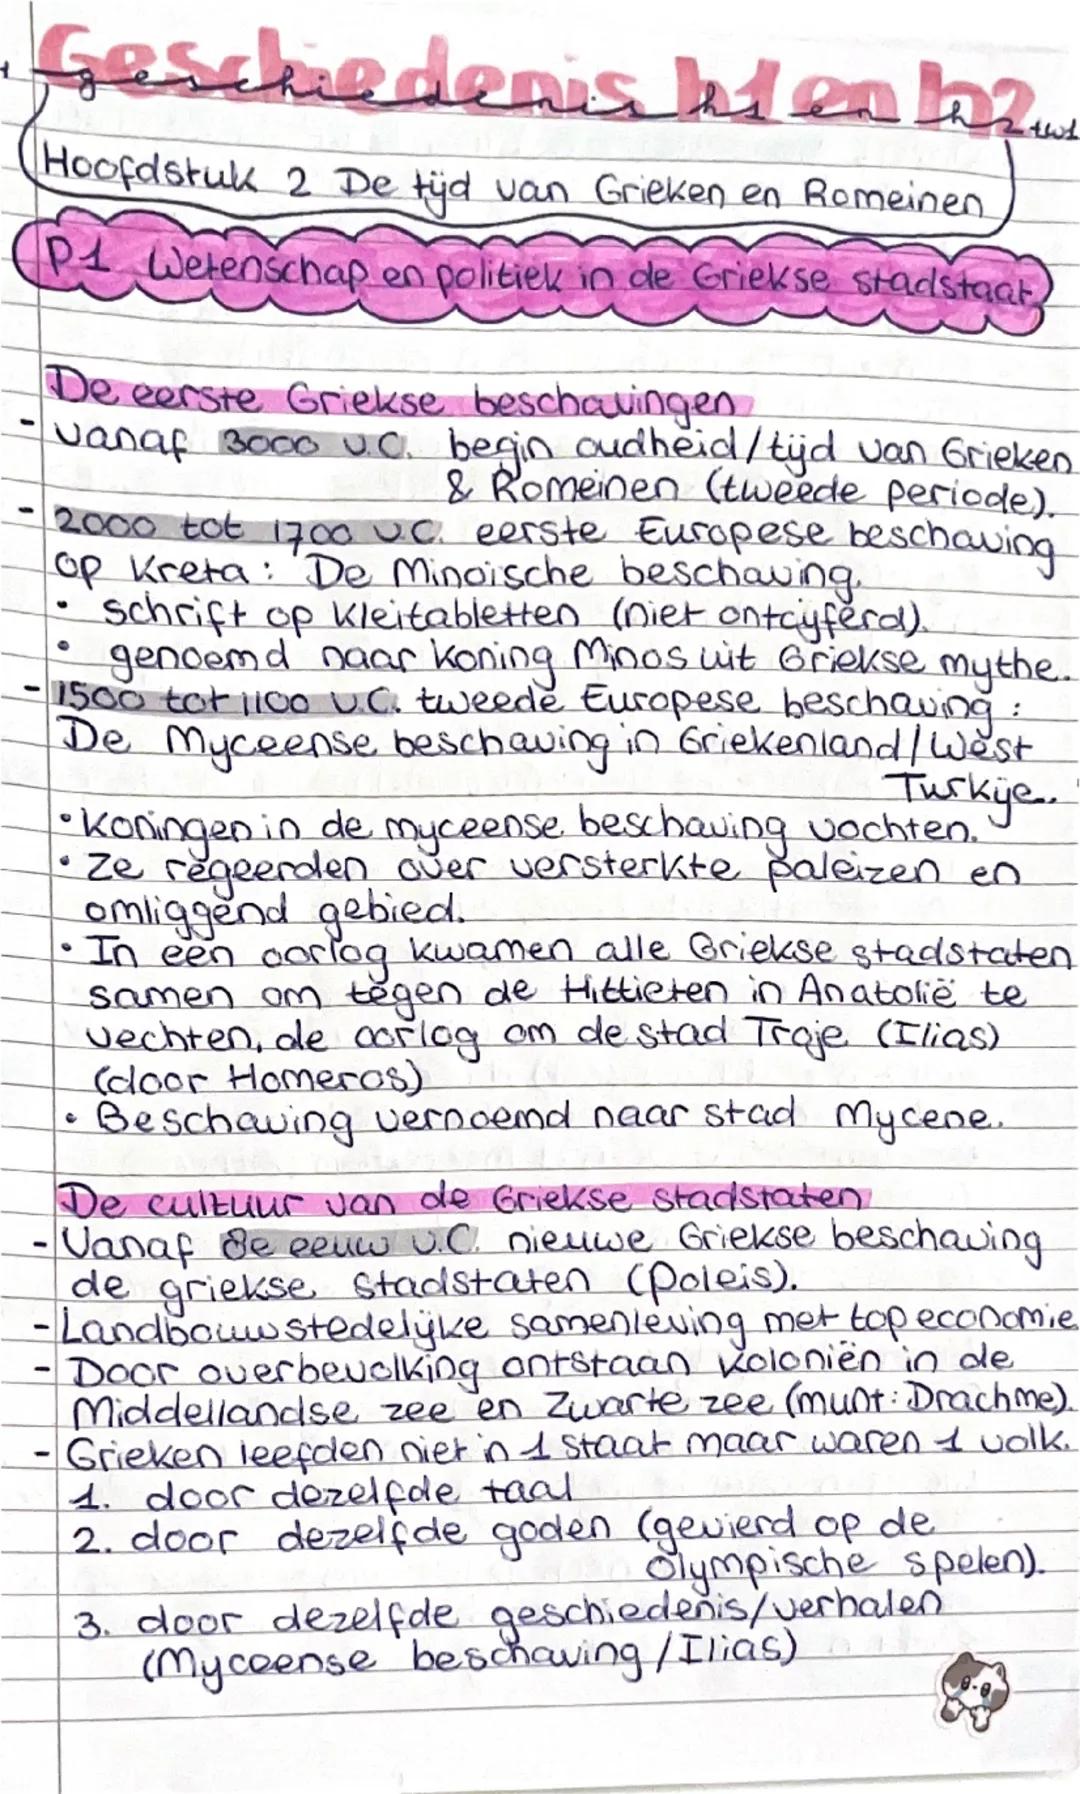 Geschiedenis h1 en h2
geschiedenis h1 en h2 tw1
Hoofdstuk 2 De tijd van Grieken en Romeinen
P1 Wetenschap en politiek in de Griekse stadstaat
De eerste Griekse beschavingen
- vanaf 3000 v.C. begin oudheid/tijd van Grieken
& Romeinen (tweede periode).
- 2000 tot 1700 v.C. eerste Europese beschaving
op Kreta: De Minoische beschaving.
• schrift op kleitabletten (niet ontcijferd).
• genoemd naar koning Minos uit Griekse mythe.
- 1500 tot 1100 v.C. tweede Europese beschaving:
De Myceense beschaving in Griekenland/West
Turkije.
• Koningen in de myceense beschaving vochten.
• Ze regeerden over versterkte paleizen en
omliggend gebied.
• In een oorlog kwamen alle Griekse stadstaten
samen om tegen de Hittieten in Anatolië te
vechten, de oorlog om de stad Troje (Ilias)
(door Homeros)
• Beschaving vernoemd naar stad Mycene.
De cultuur van de Griekse stadstaten
- Vanaf 8e eeuw v.C. nieuwe Griekse beschaving
de griekse stadstaten (Poleis).
- Landbouwstedelijke samenleving met top economie
- Door overbevolking ontstaan koloniën in de
Middellandse zee en Zwarte zee (munt: Drachme).
- Grieken leefden niet in 1 staat maar waren 1 volk.
1. door dezelfde taal
2. door dezelfde goden (gevierd op de
Olympische spelen).
3. door dezelfde geschiedenis/verhalen
(Myceense beschaving/Ilias)